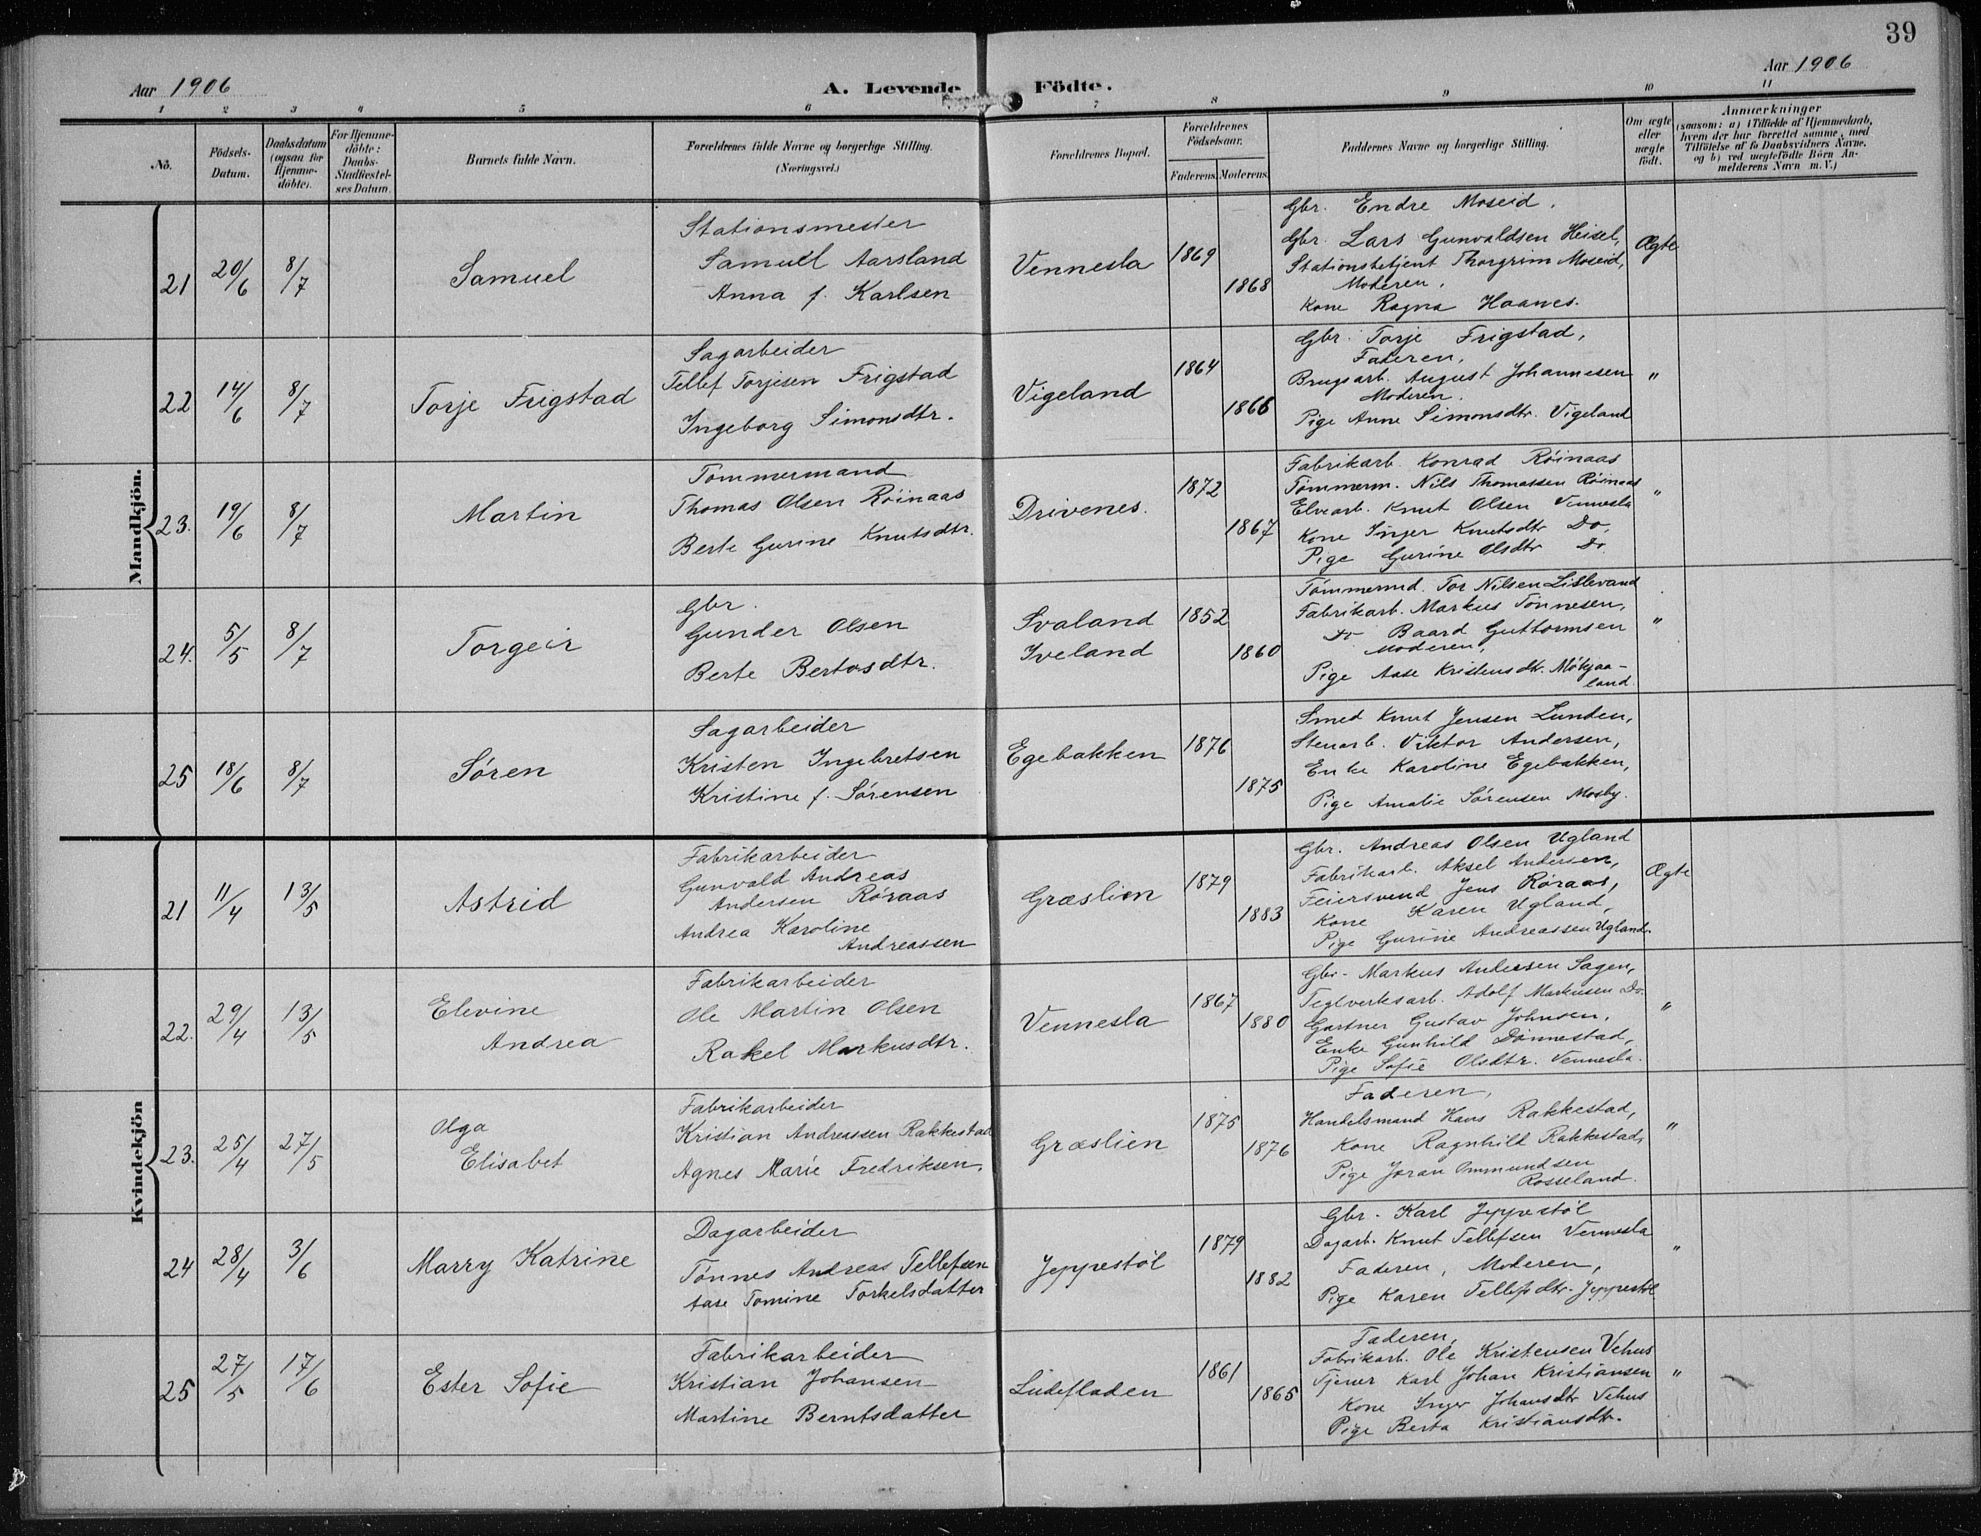 39
Aar 1906
A. Levende Födte.
Aar 1906
1 2 3 4 5 6 7 8 9 10 11
No.
Födsels-
Datum.
Daabsdatum
(ogsaa for
Hjemme-
döbte).
For Hjemme-
döbte:
Daabs-
Stadfæstel-
ses Datum.
Barnets fulde Navn.
Forældrenes fulde Navne og borgerlige Stilling.
(Næringsvei.)
Forældrenes Bopæl.
Forældrenes
Födselsaar.
Faderens. Moderens.
Faddernes Navne og borgerlige Stilling.
Om ægte
eller
uægte
födt.
Anmærkninger
(saasom: a) i Tilfælde af Hjemmedaab,
hvem der har forrettet samme, med
Tilföielse af to Daabsvidners Navne,
og b) ved uægtefödte Börn An-
melderens Navn m. V.)
Mandkjön.
21 20/6 8/7
Samuel
Stationsmester
Samuel Aarsland
Anna f. Karlsen
Vennesla 1869 1868
Gbr. Endre Moseid.
Gbr. Lars Gunvaldsen Heisel,
Stationsbetjent Thorgrim Moseid,
Moderen,
Kone Ragna Haanes.
Ægte
22 14/6 8/7
Torje Frigstad
Sagarbeider
Tellef Torjesen Frigstad
Ingeborg Simonsdtr.
Vigeland 1864 1866
Gbr. Torje Frigstad,
Faderen,
Brugsarb. August Johannesen
Moderen.
Pige Anne Simonsdtr. Vigeland
"
23. 19/6 8/7
Martin
Tømmermand
Thomas Olsen Röinaas
Berte Gurine Knutsdtr.
Drivenes. 1872 1867
Fabrikarb. Konrad Röinaas
Tømmerm. Nils Thomassen Röinaas
Elvearb. Knut Olsen Vennesla
Kone Inger Knutsdtr Do,
Pige Gurine Olsdtr Do
"
24. 5/5 8/7
Torgeir
Gbr.
Gunder Olsen
Berte Bertosdtr.
Svaland
Iveland
1852 1860
Tømmermd. Tor Nilsen Lislevand
Fabrikarb. Markus Tønnesen,
Do Baard Guttormsen
Moderen,
Pige Aase Kristensdtr. Mökjaa-
land.
"
25 18/6 8/7
Søren
Sagarbeider
Kristen Ingebretsen
Kristine f. Sørensen
Egebakken 1876 1875
Smed Knut Jensen Lunden,
Stenarb. Viktor Andersen,
Enke Karoline Egebakken,
Pige Amalie Sørensen Mosby.
Kvindekjön
21 11/4 13/5
Astrid
Fabrikarbeider
Gunvald Andreas
Andersen Røraas
Andrea Karoline
Andreassen
Græslien 1879 1883
Gbr. Andreas Olsen Ugland
Fabrikarb. Aksel Andersen,
Feiersvend Jens Røraas,
Kone Karen Ugland,
Pige Gurine Andreassen Ugland.
Ægte
22. 29/4 13/5
Elevine
Andrea
Fabrikarbeider
Ole Martin Olsen
Rakel Markusdtr.
Vennesla 1867 1880
Gbr. Markus Andersen Sagen,
Teglverksarb. Adolf Markusen Do.
Gartner Gustav Johnsen,
Enke Gunhild Dønnestad,
Pige Sofie Olsdtr. Vennesla.
"
23. 25/4 27/5
Olga
Elisabet
Fabrikarbeider
Kristian Andreassen Rakkestad
Agnes Marie Fredriksen,
Græslien 1875 1876
Faderen,
Handelsmand Hans Rakkestad,
Kone Ragnhild Rakkestad,
Pige Joran Ommundsen
Rosseland.
"
24 28/4 3/6
Marry Katrine
Dagarbeider
Tønnes Andreas Tellefsen
Aase Tomine Torkelsdatter
Jeppestöl 1879 1882
Gbr. Karl Jeppestöl
Dagarb. Knut Tellefsen Vennesla
Faderen, Moderen,
Pige Karen Tellefsdtr. Jeppestöl
"
25 27/5 17/6
Ester Sofie
Fabrikarbeider
Kristian Johansen
Martine Berntsdatter
Ludefladen 1861 1865
Faderen,
Fabrikarb. Ole Kristensen Vehus
Tjener Karl Johan Kristiansen
Kone Inger Johansdtr Vehus
Pige Berta Kristiansdtr.
"